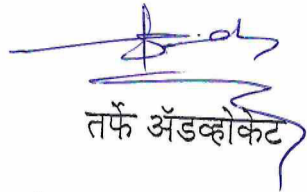 तर्फे ॲडव्होकेट